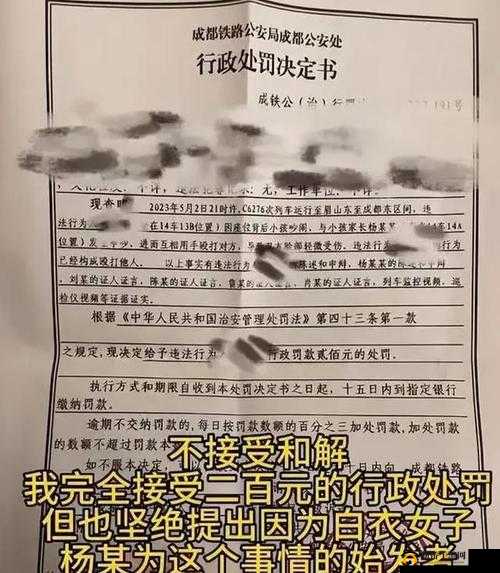 成都铁路公安局成都公安处
行政处罚决定书
成铁公（治）行罚 191号
文化程度：不详，违法犯罪记录：无，工作单位：不详。
现查明 2023年5月2日21时许，C6276次列车运行至眉山东至成都东区间，违
法行为人 在14车13B位置）因座位背后小孩吵闹，与小孩家长杨某 14车14A
位置）发生 进而互相用手殴打对方， 脸部轻微受伤。违法行为 行为
已经构成殴打他人。 以上事实有违法行为 陈述和申辩，杨某某的陈述和申辩，
刘某的证人证言，陈某的证人证言，鲁某的证人证言，肖某的证人证言，列车监控视频，巡
检仪视频等证据证实。
根据《中华人民共和国治安管理处罚法》第四十三条第一款
之规定，现决定给予违法行为 行政罚款贰佰元的处罚。
执行方式和期限自收到本处罚决定书之日起，十五日内到指定银行
缴纳罚款。
逾期不交纳罚款的，每日按罚款数额的百分之三加处罚款，加处罚款
的数额不超过罚款本
如不服本决定， 日内向 成都铁路
不接受和解
我完全接受二百元的行政处罚
但也坚绝提出因为白衣女子
杨某为这个事情的始发